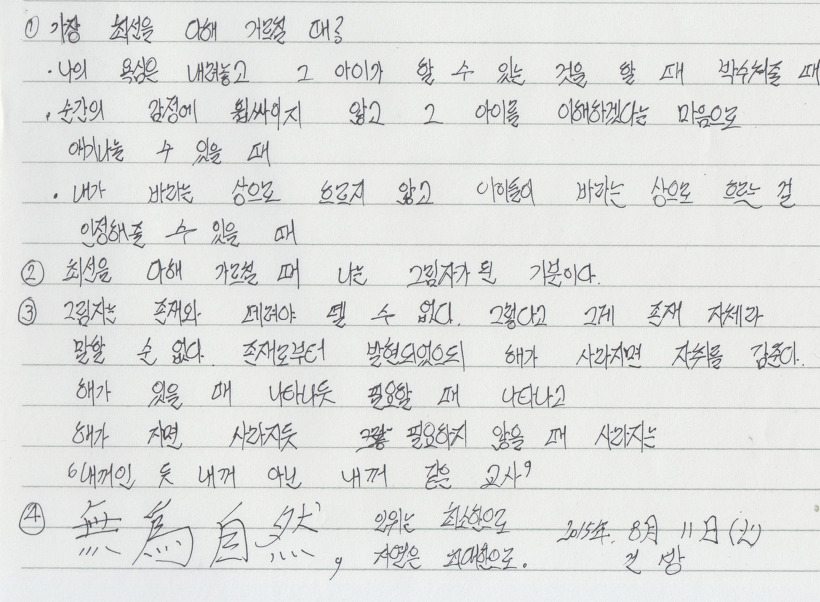 ① 가장 최선을 다해 가르칠 때?
· 나의 욕심은 내려놓고 그 아이가 할 수 있는 것을 할 때 박수쳐줄 때
· 순간의 감정에 휩싸이지 않고 그 아이를 이해하겠다는 마음으로
얘기나눌 수 있을 때
· 내가 바라는 상으로 흐르지 않고 아이들이 바라는 상으로 흐르는 걸
인정해줄 수 있을 때
② 최선을 다해 가르칠 때 나는 그림자가 된 기분이다.
③ 그림자는 존재와 떼려야 뗄 수 없다. 그렇다고 그게 존재 자체라
말할 순 없다. 존재로부터 발현되었으되 해가 사라지면 자취를 감춘다.
해가 있을 때 나타나듯 필요할 때 나타나고
해가 지면 사라지듯 필요하지 않을 때 사라지는
'내꺼인 듯 내꺼 아닌 내꺼 같은 교사'
④ 無爲自然, 인위는 최소한으로 2015年. 8月 11日(火)
자연은 최대한으로.